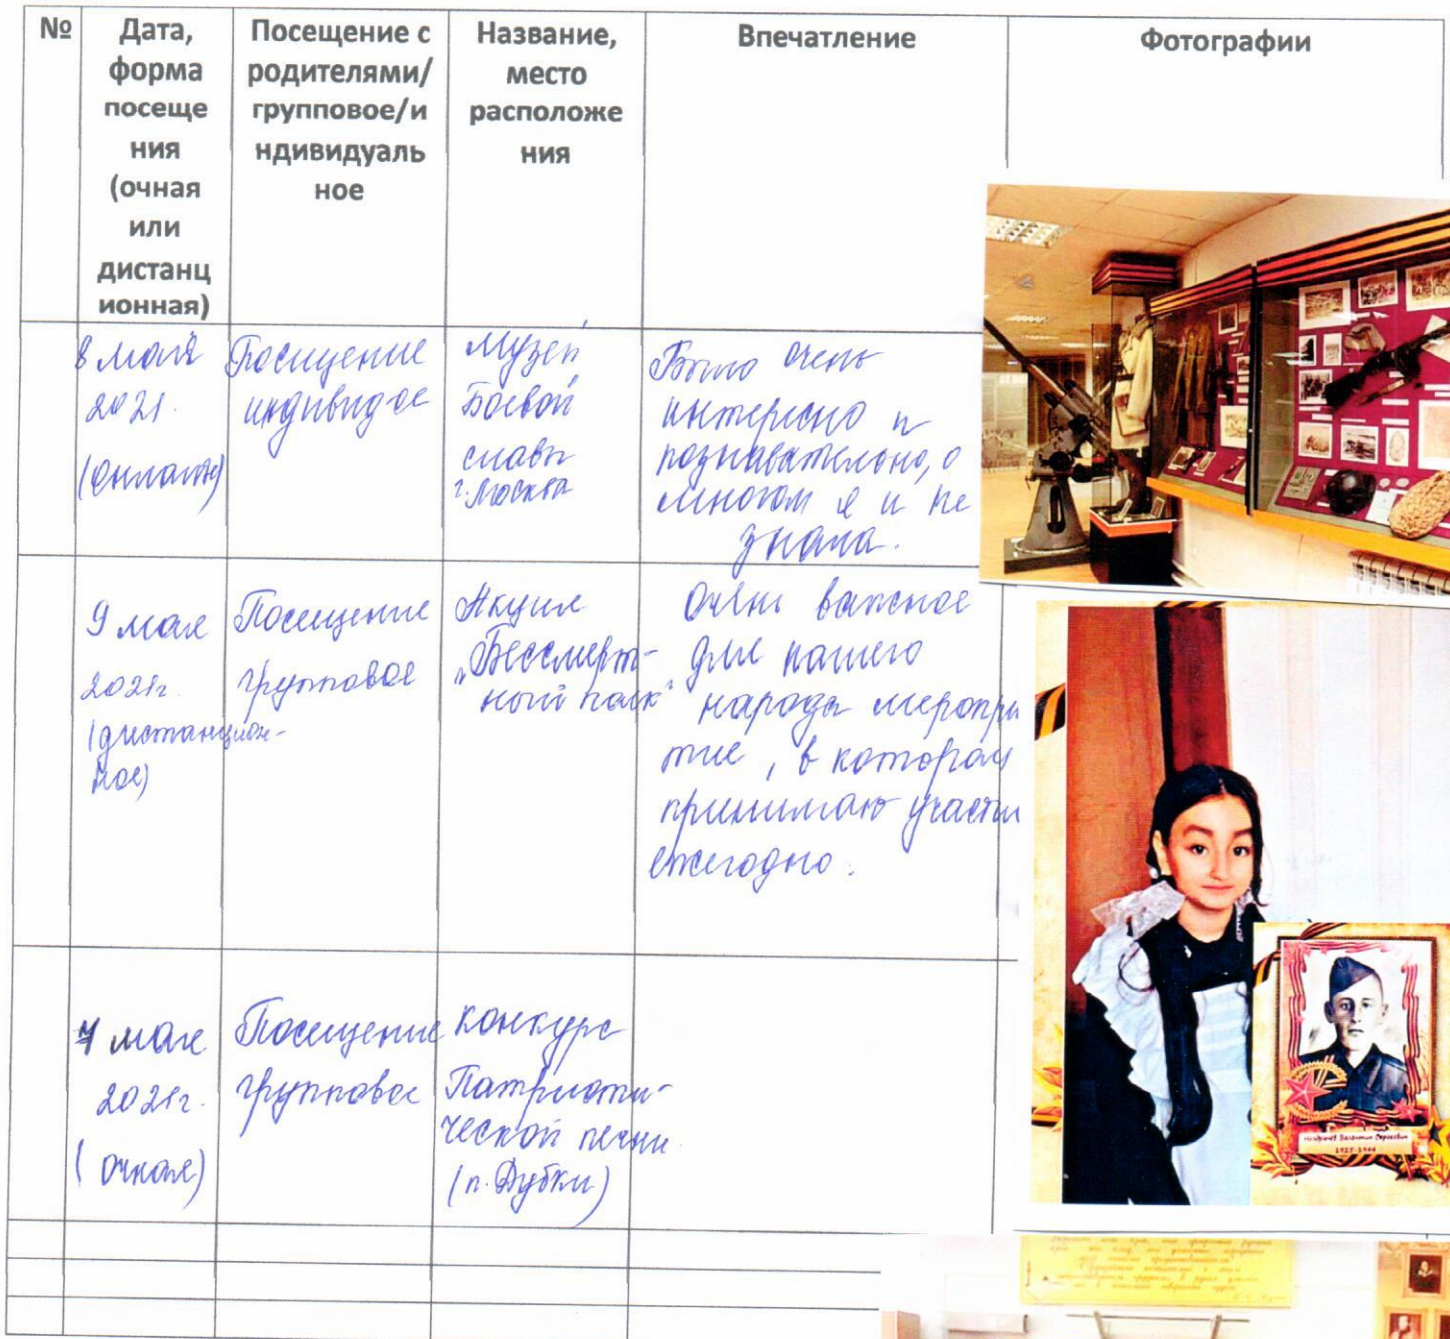 №
Дата,
форма
посеще
ния
(очная
или
дистанц
ионная)
Посещение с
родителями/
групповое/и
ндивидуаль
ное
Название,
место
расположе
ния
Впечатление
Фотографии
8 мая
2021.
(онлайн)
Посищение
индивид-ое
Музей
Боевой
славы
г. Москва
Было очень
интересно и
познавательно, о
многом я и не
знала.
9 мая
2021г.
(дистанцион-
ное)
Посещение
групповое
Акция
"Бессмерт-
ный полк"
Очень важное
для нашего
народа меропри
тие, в котором
принимаю участи
ежегодно.
7 мая
2021г.
(очная)
Посещение
групповое
конкурс
Патриоти-
ческой песни
(п. Дубки)
Валентин Сергеевич